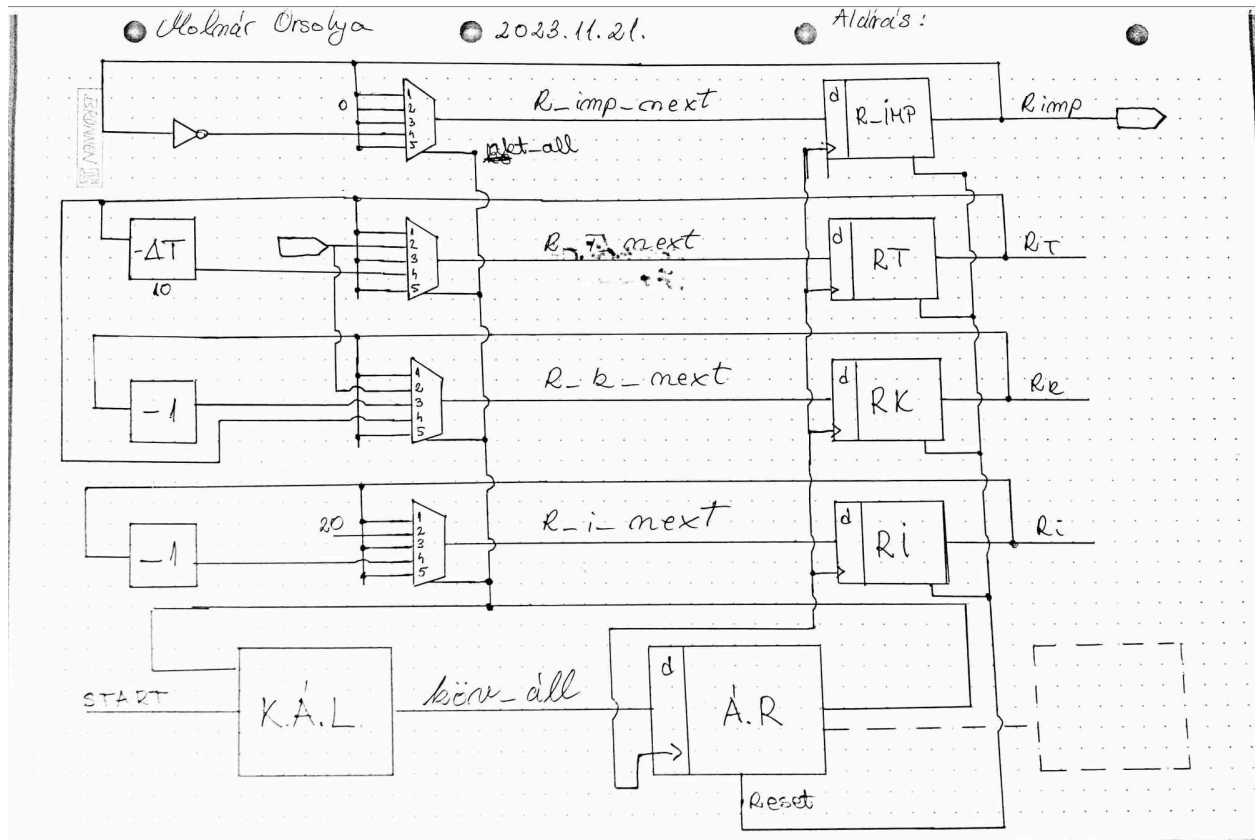 Molnár Orsolya 2023.11.21. Aláírás:
BRUNNEN
0 1 2 3 4 5 R_imp_next d R_IMP Rimp
akt_all
-ΔT 10 1 2 3 4 5 R_T_next d RT RT
-1 1 2 3 4 5 R_k_next d RK Rk
-1 20 1 2 3 4 5 R_i_next d Rİ Ri
START K.Á.L. köv_áll d Á.R
Reset